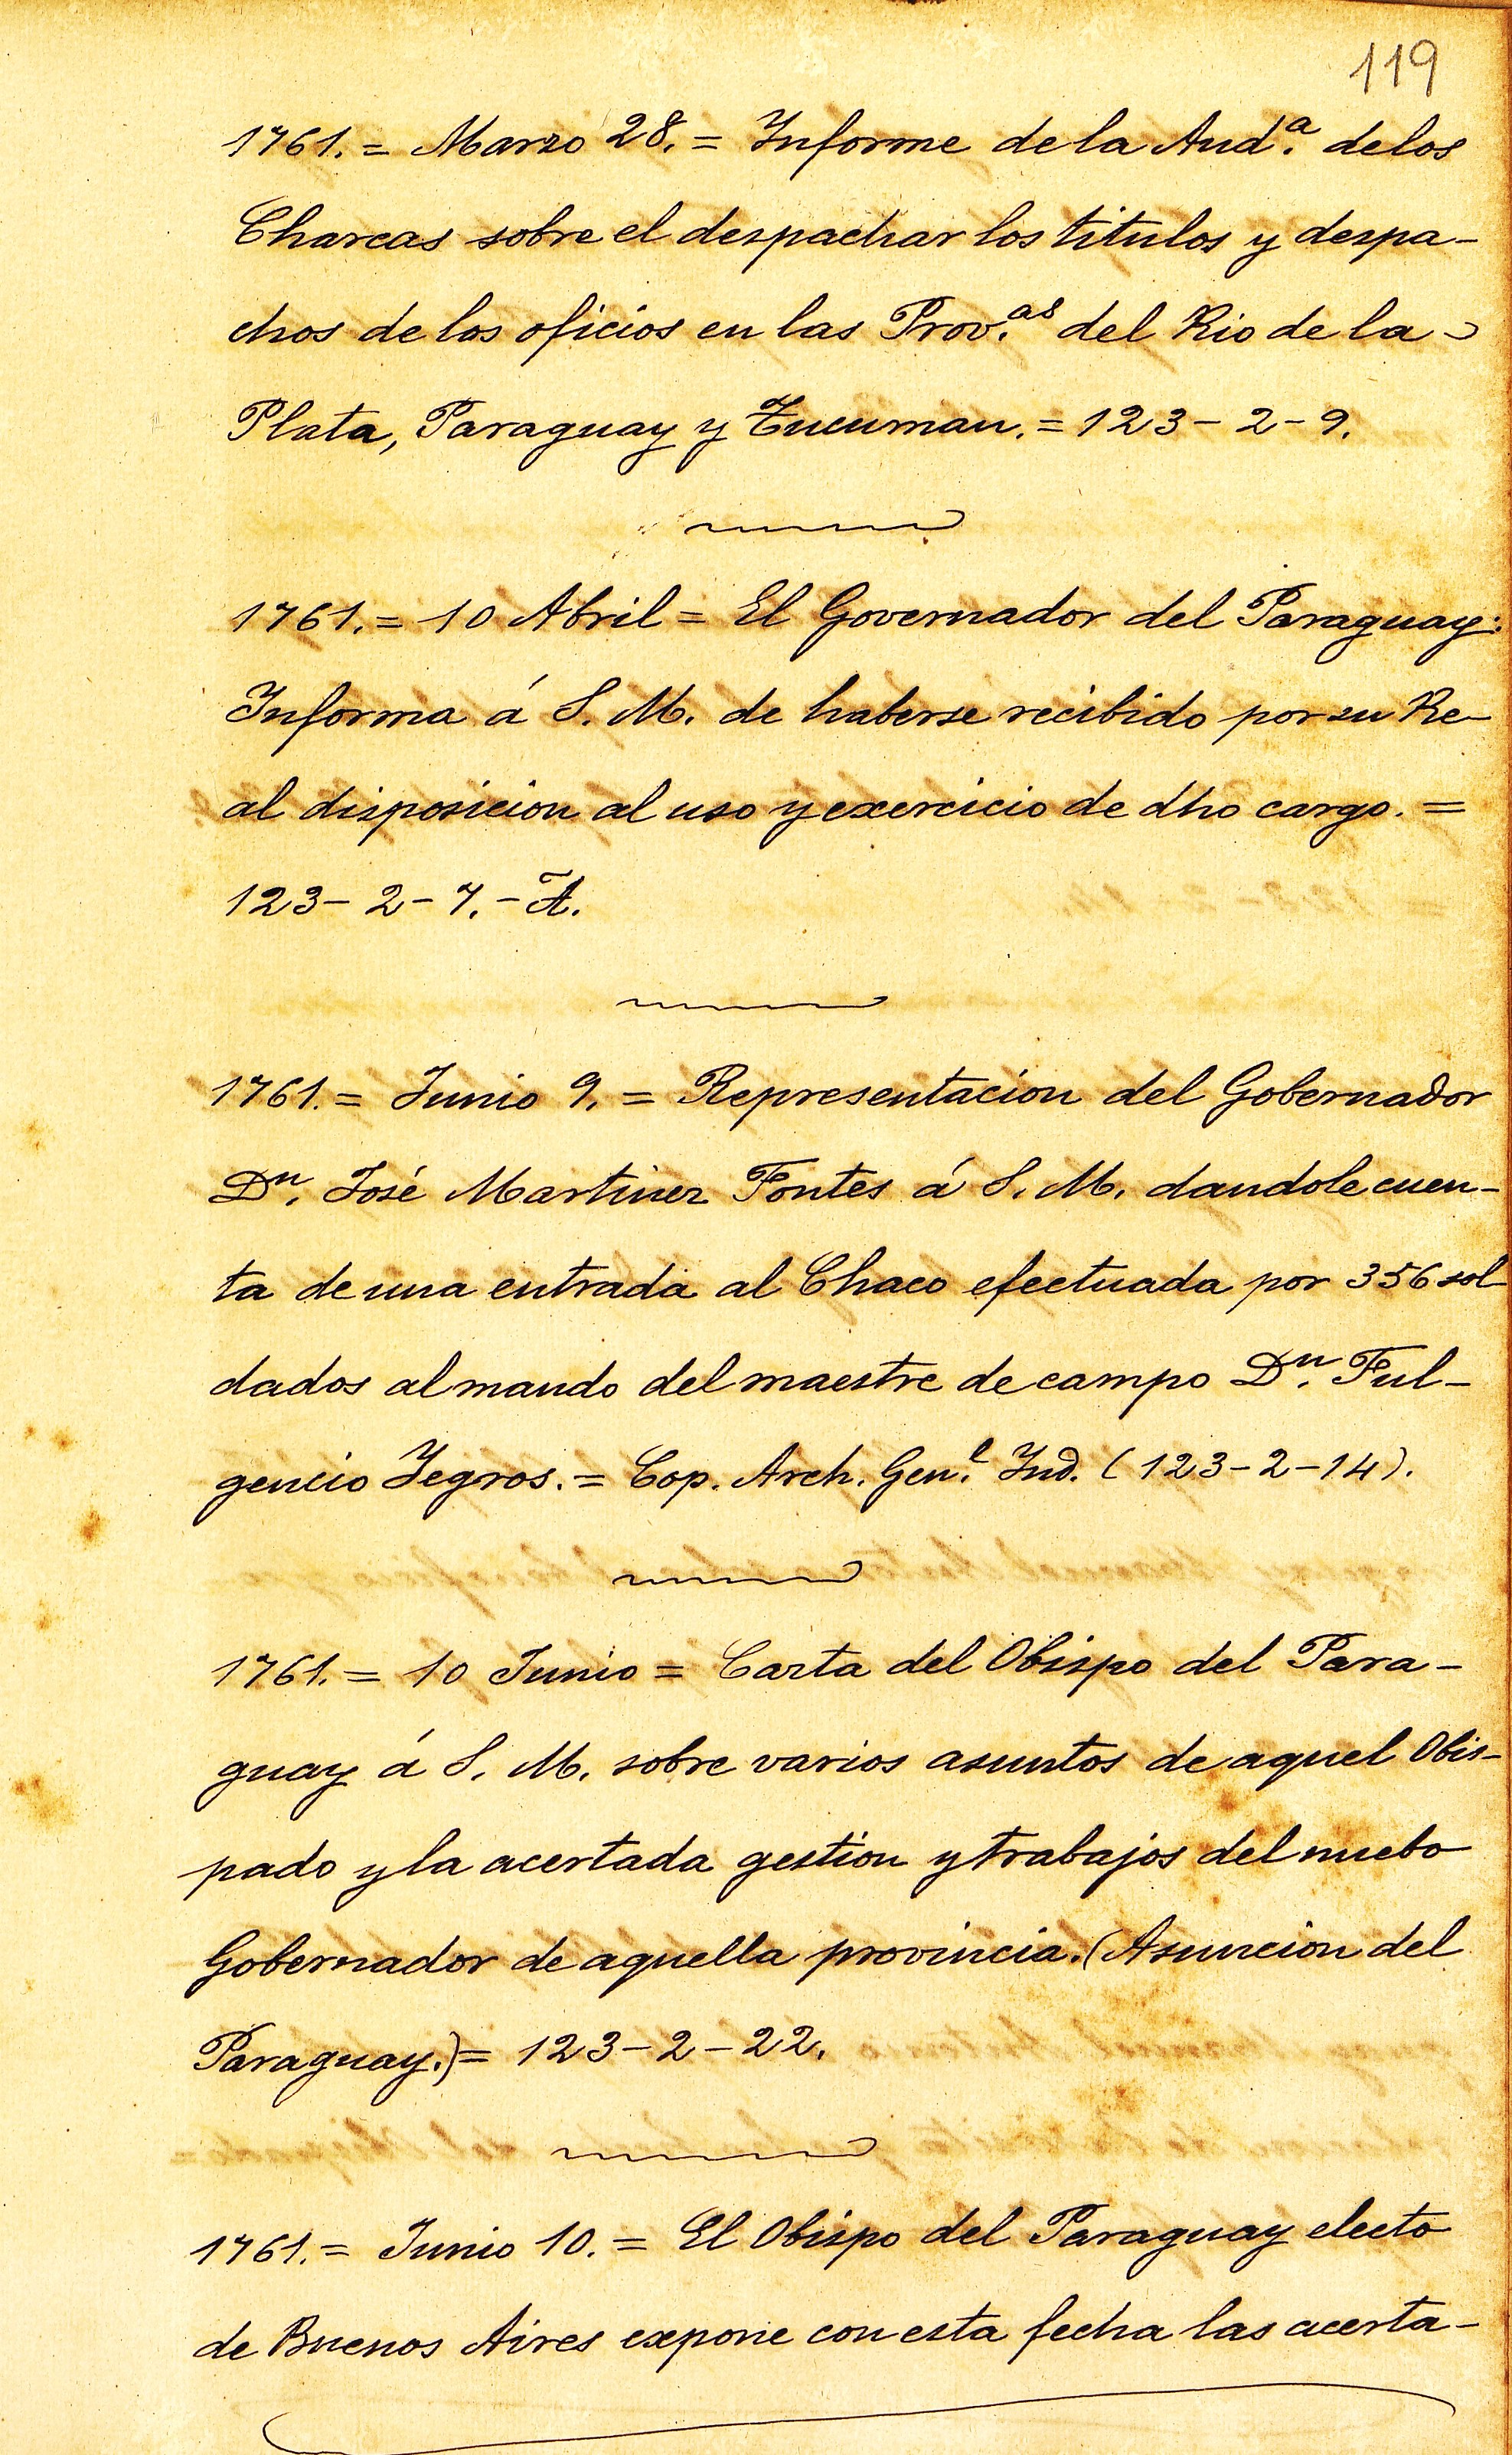 119
1761. = Marzo 28. = Informe de la Aud.ª de los
Charcas sobre el despachar los titulos y despa-
chos de los oficios en las Prov.as del Rio de la -
Plata, Paraguay y Tucuman. = 123 - 2 - 9.
1761. = 10 Abril = El Governador del Paraguay:
Informa á S. M. de haberse recibido por su Re-
al disposicion al uso y exercicio de dho cargo. =
123 - 2 - 7. - A.
1761. = Junio 9. = Representacion del Gobernador
Dn. José Martinez Fontes á S. M. dandole cuen-
ta de una entrada al Chaco efectuada por 356 sol-
dados al mando del maestre de campo Dn. Ful-
gencio Yegros. = Cop. Arch. Gen.l Ind. (123 - 2 - 14).
1761. = 10 Junio = Carta del Obispo del Para-
guay á S. M. sobre varios asuntos de aquel Obis-
pado y la acertada gestion y trabajos del nuebo
Gobernador de aquella provincia. (Asuncion del
Paraguay.) = 123 - 2 - 22.
1761. = Junio 10. = El Obispo del Paraguay electo
de Buenos Aires expone con esta fecha las acerta-